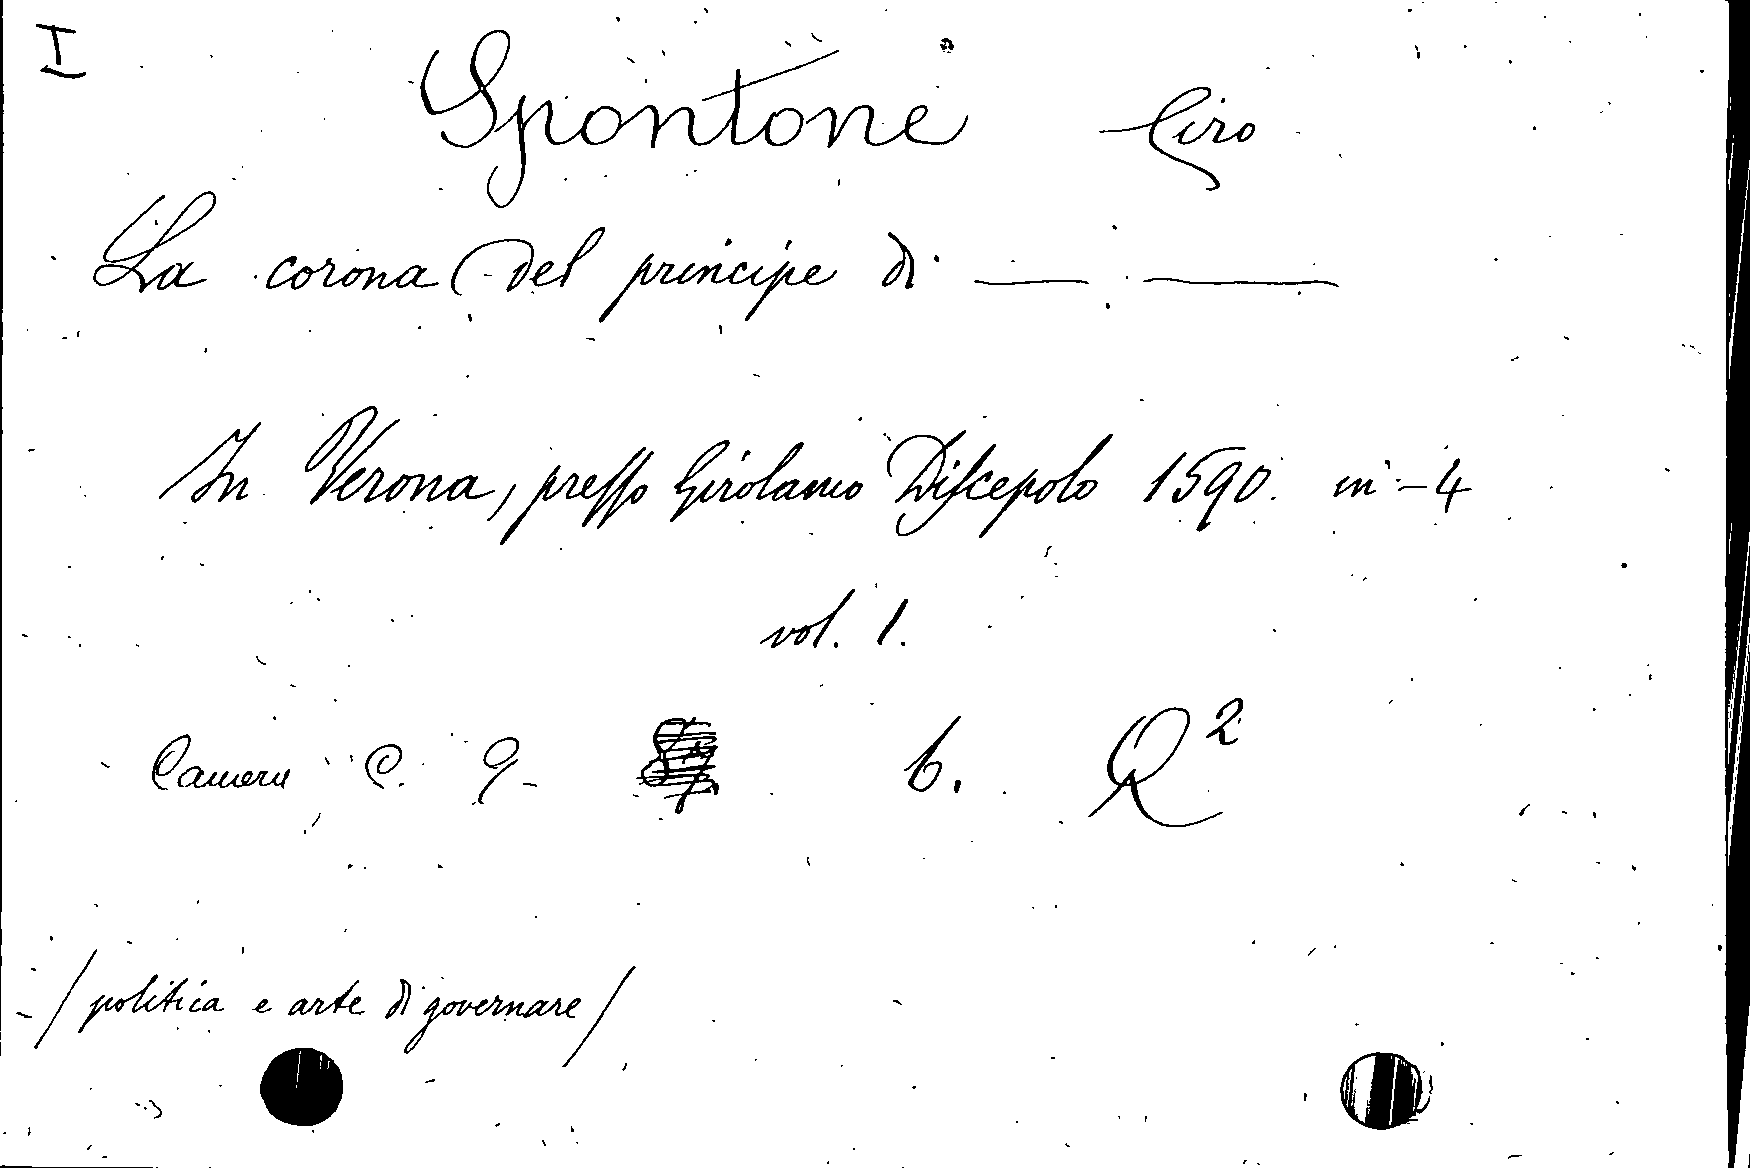 I
Spontone Ciro
La corona del principe di — —
In Verona, presso Girolamo Discepolo 1590. in -4
vol. 1.
Camera C. 9- 6. Q²
/politica e arte di governare/